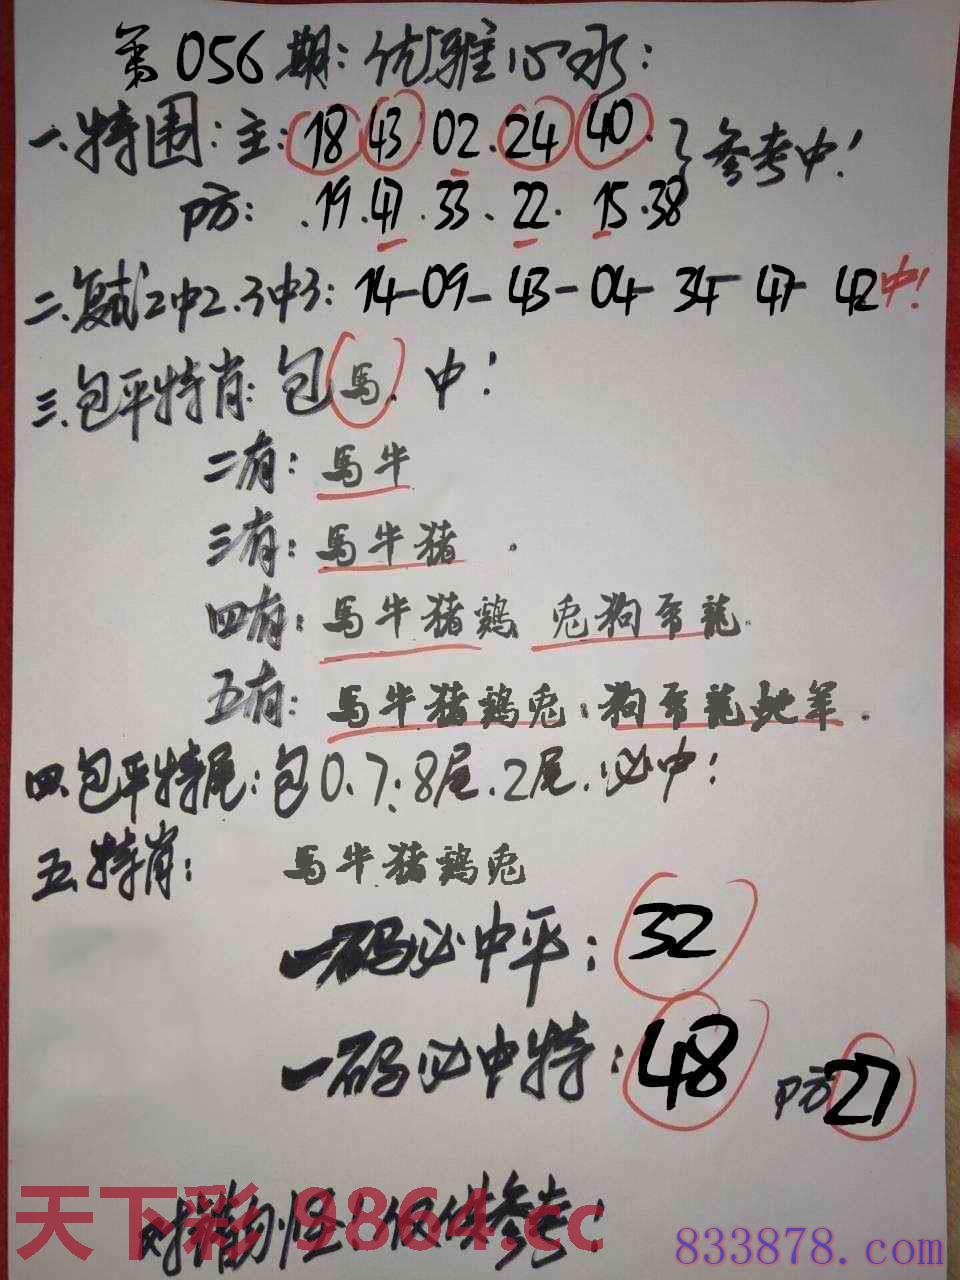 第056期:优雅心水:
一.特围:主:18.43.02.24.40.}参考中!
防:.19.47.33.22.15.38
二.复试2中2.3中3:14-09-43-04-34-47-42中!
三.包平特肖:包馬.中!
二有:馬牛
三有:馬牛猪.
四有:馬牛猪鷄 兎狗鼠龍.
五有:馬牛猪鷄兎:狗鼠龍蛇羊.
四.包平特尾:包0.7:8尾.2尾.必中!
五.特肖:馬牛猪鷄兎
一码必中平:32
一码必中特:48 防27
天下彩 9864.cc
勿怪!仅供参考!
833878.com